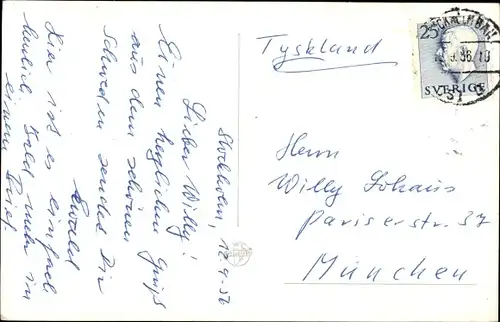 Stockholm, 12-9-56
Lieber Willy!
Einen herzlichen Gruß
aus dem schönen
Schweden sendet Dir
Ewald
Hier ist es einfach
Bald mehr in
einem Brief.
Tyskland
25
SVERIGE
Herrn
Willy Lohaus
Pariserstr. 37
München